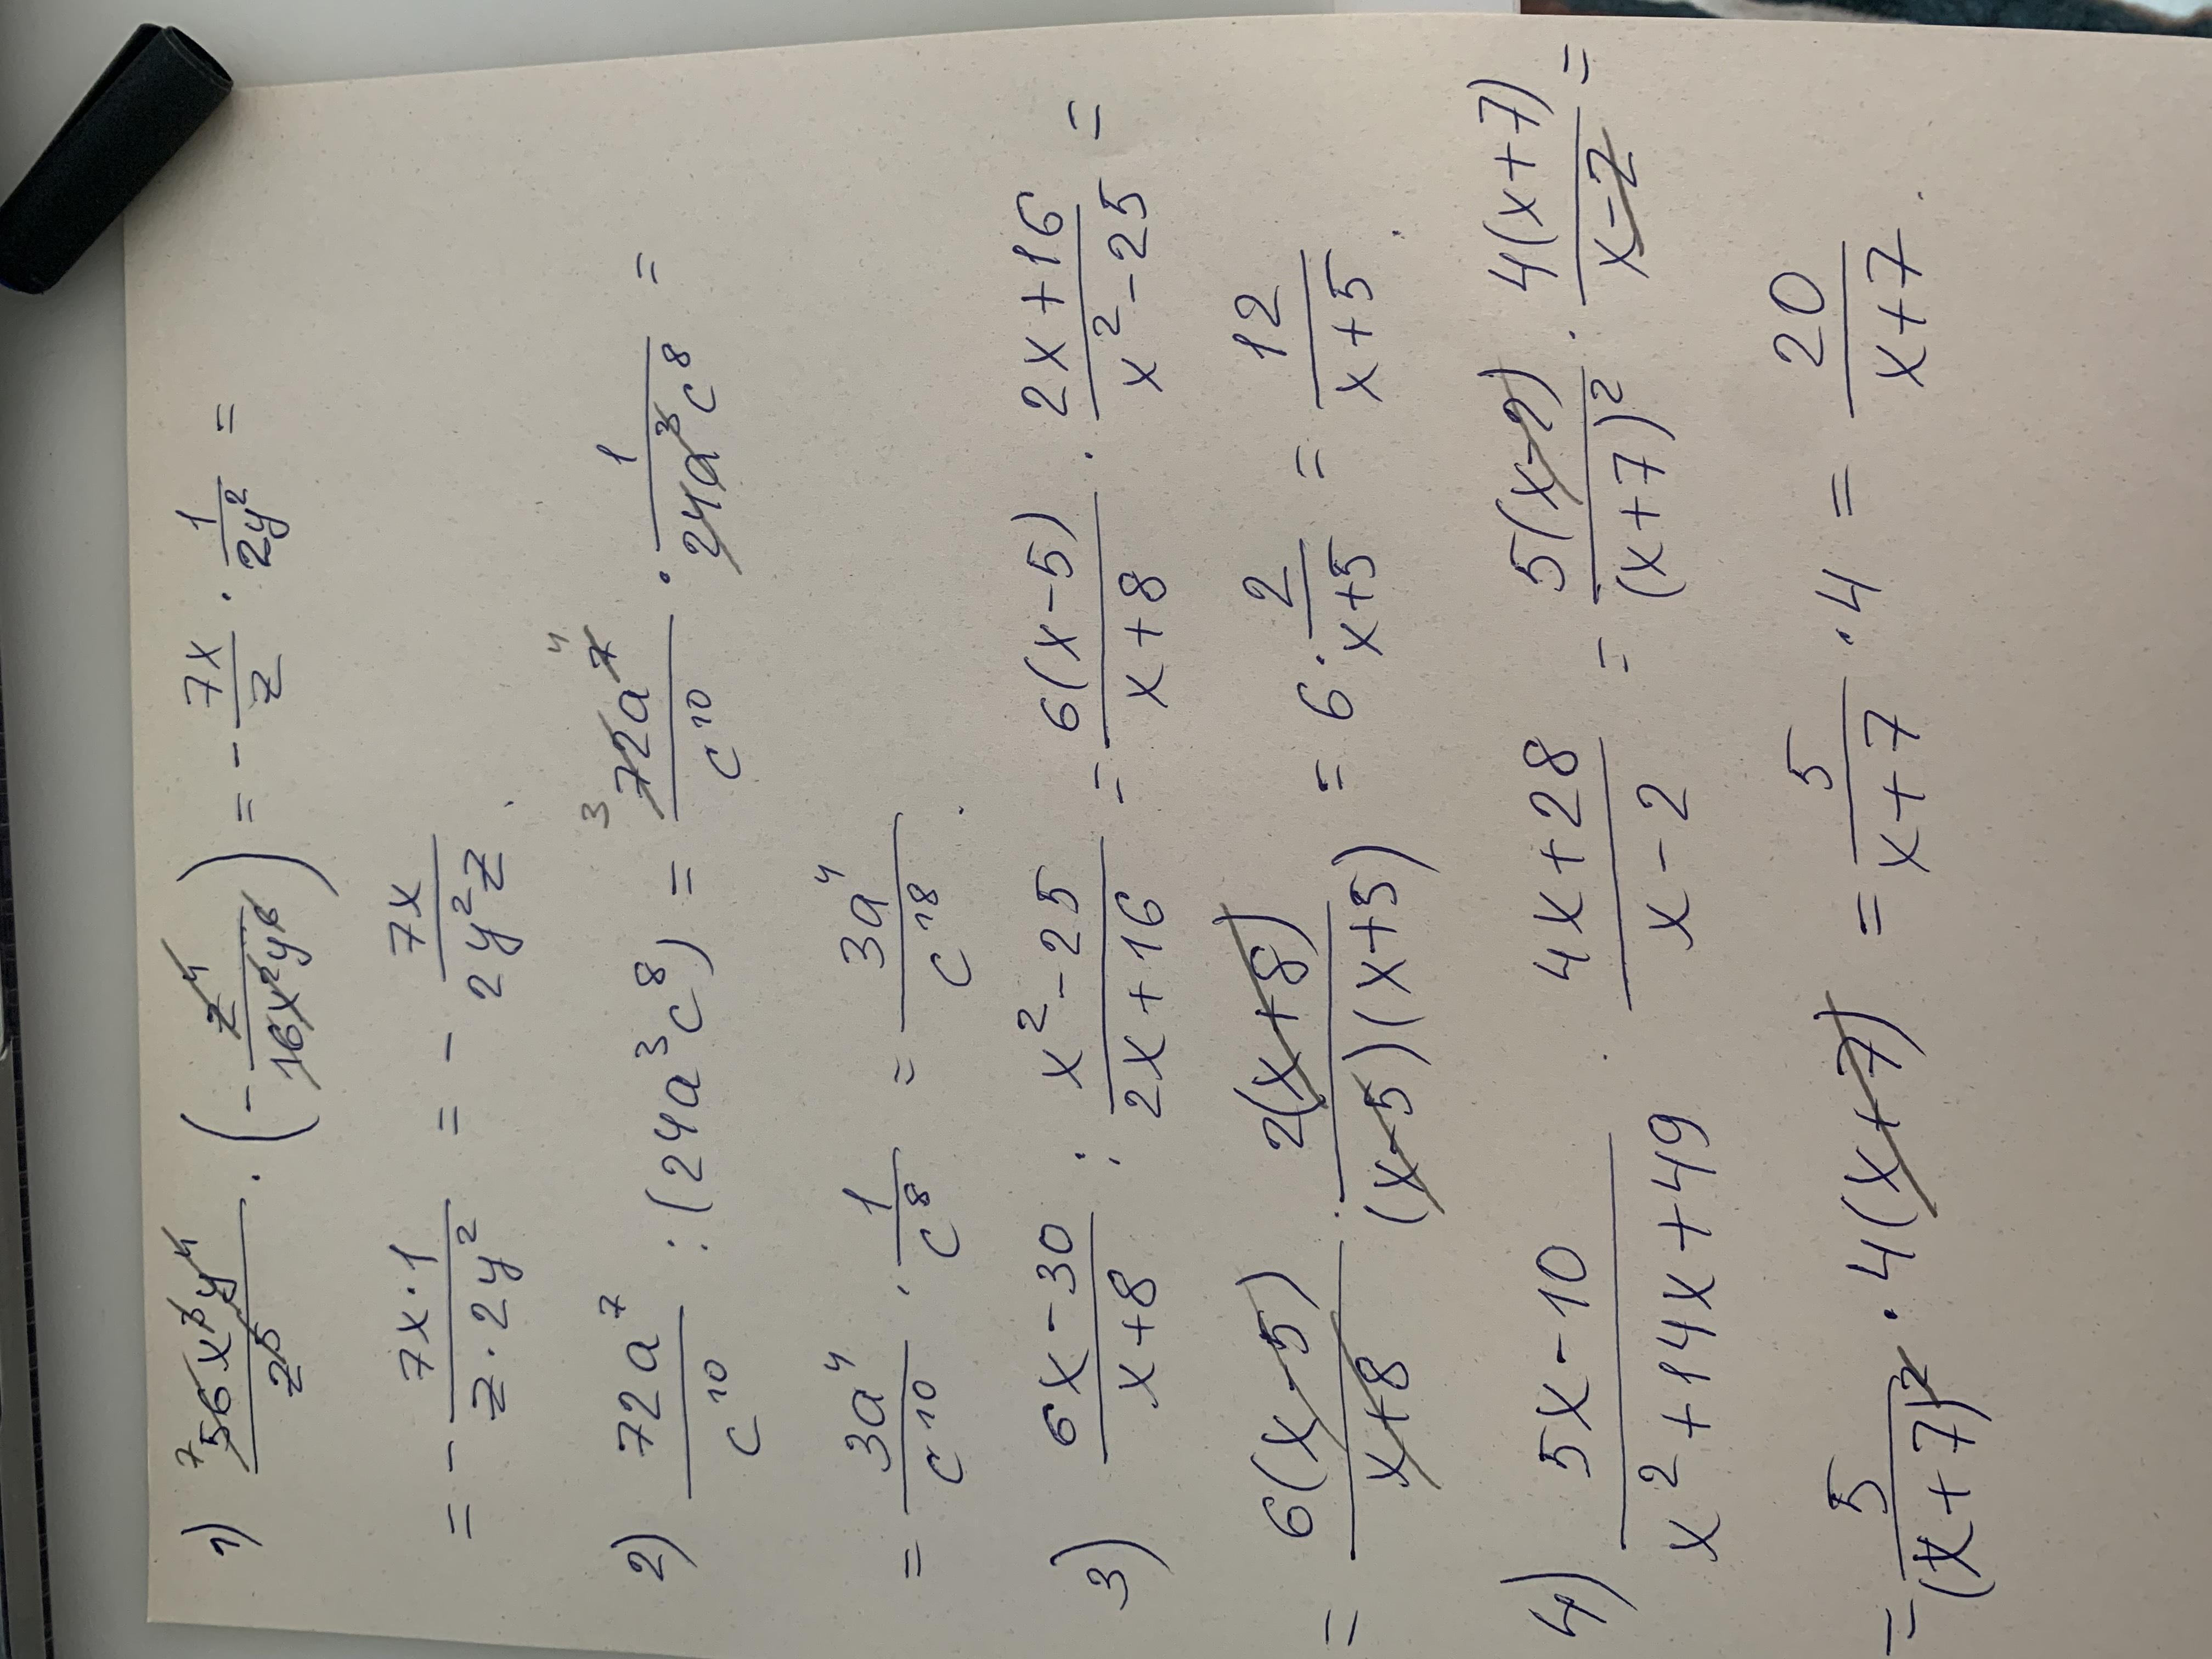 1) \frac{56x^3y^4}{z^5} · (-\frac{z^4}{16x^2y^6}) = -\frac{7x}{z} · \frac{1}{2y^2} =
= -\frac{7x·1}{z·2y^2} = -\frac{7x}{2y^2z}.
2) \frac{72a^7}{c^{10}} : (24a^3c^8) = \frac{72a^7}{c^{10}} · \frac{1}{24a^3c^8} =
= \frac{3a^4}{c^{10}} · \frac{1}{c^8} = \frac{3a^4}{c^{18}}.
3) \frac{6x-30}{x+8} : \frac{x^2-25}{2x+16} = \frac{6(x-5)}{x+8} · \frac{2x+16}{x^2-25} =
= \frac{6(x-5)}{x+8} · \frac{2(x+8)}{(x-5)(x+5)} = 6 · \frac{2}{x+5} = \frac{12}{x+5}.
4) \frac{5x-10}{x^2+14x+49} · \frac{4x+28}{x-2} = \frac{5(x-2)}{(x+7)^2} · \frac{4(x+7)}{x-2} =
= \frac{5}{(x+7)^2} · 4(x+7) = \frac{5}{x+7} · 4 = \frac{20}{x+7}.